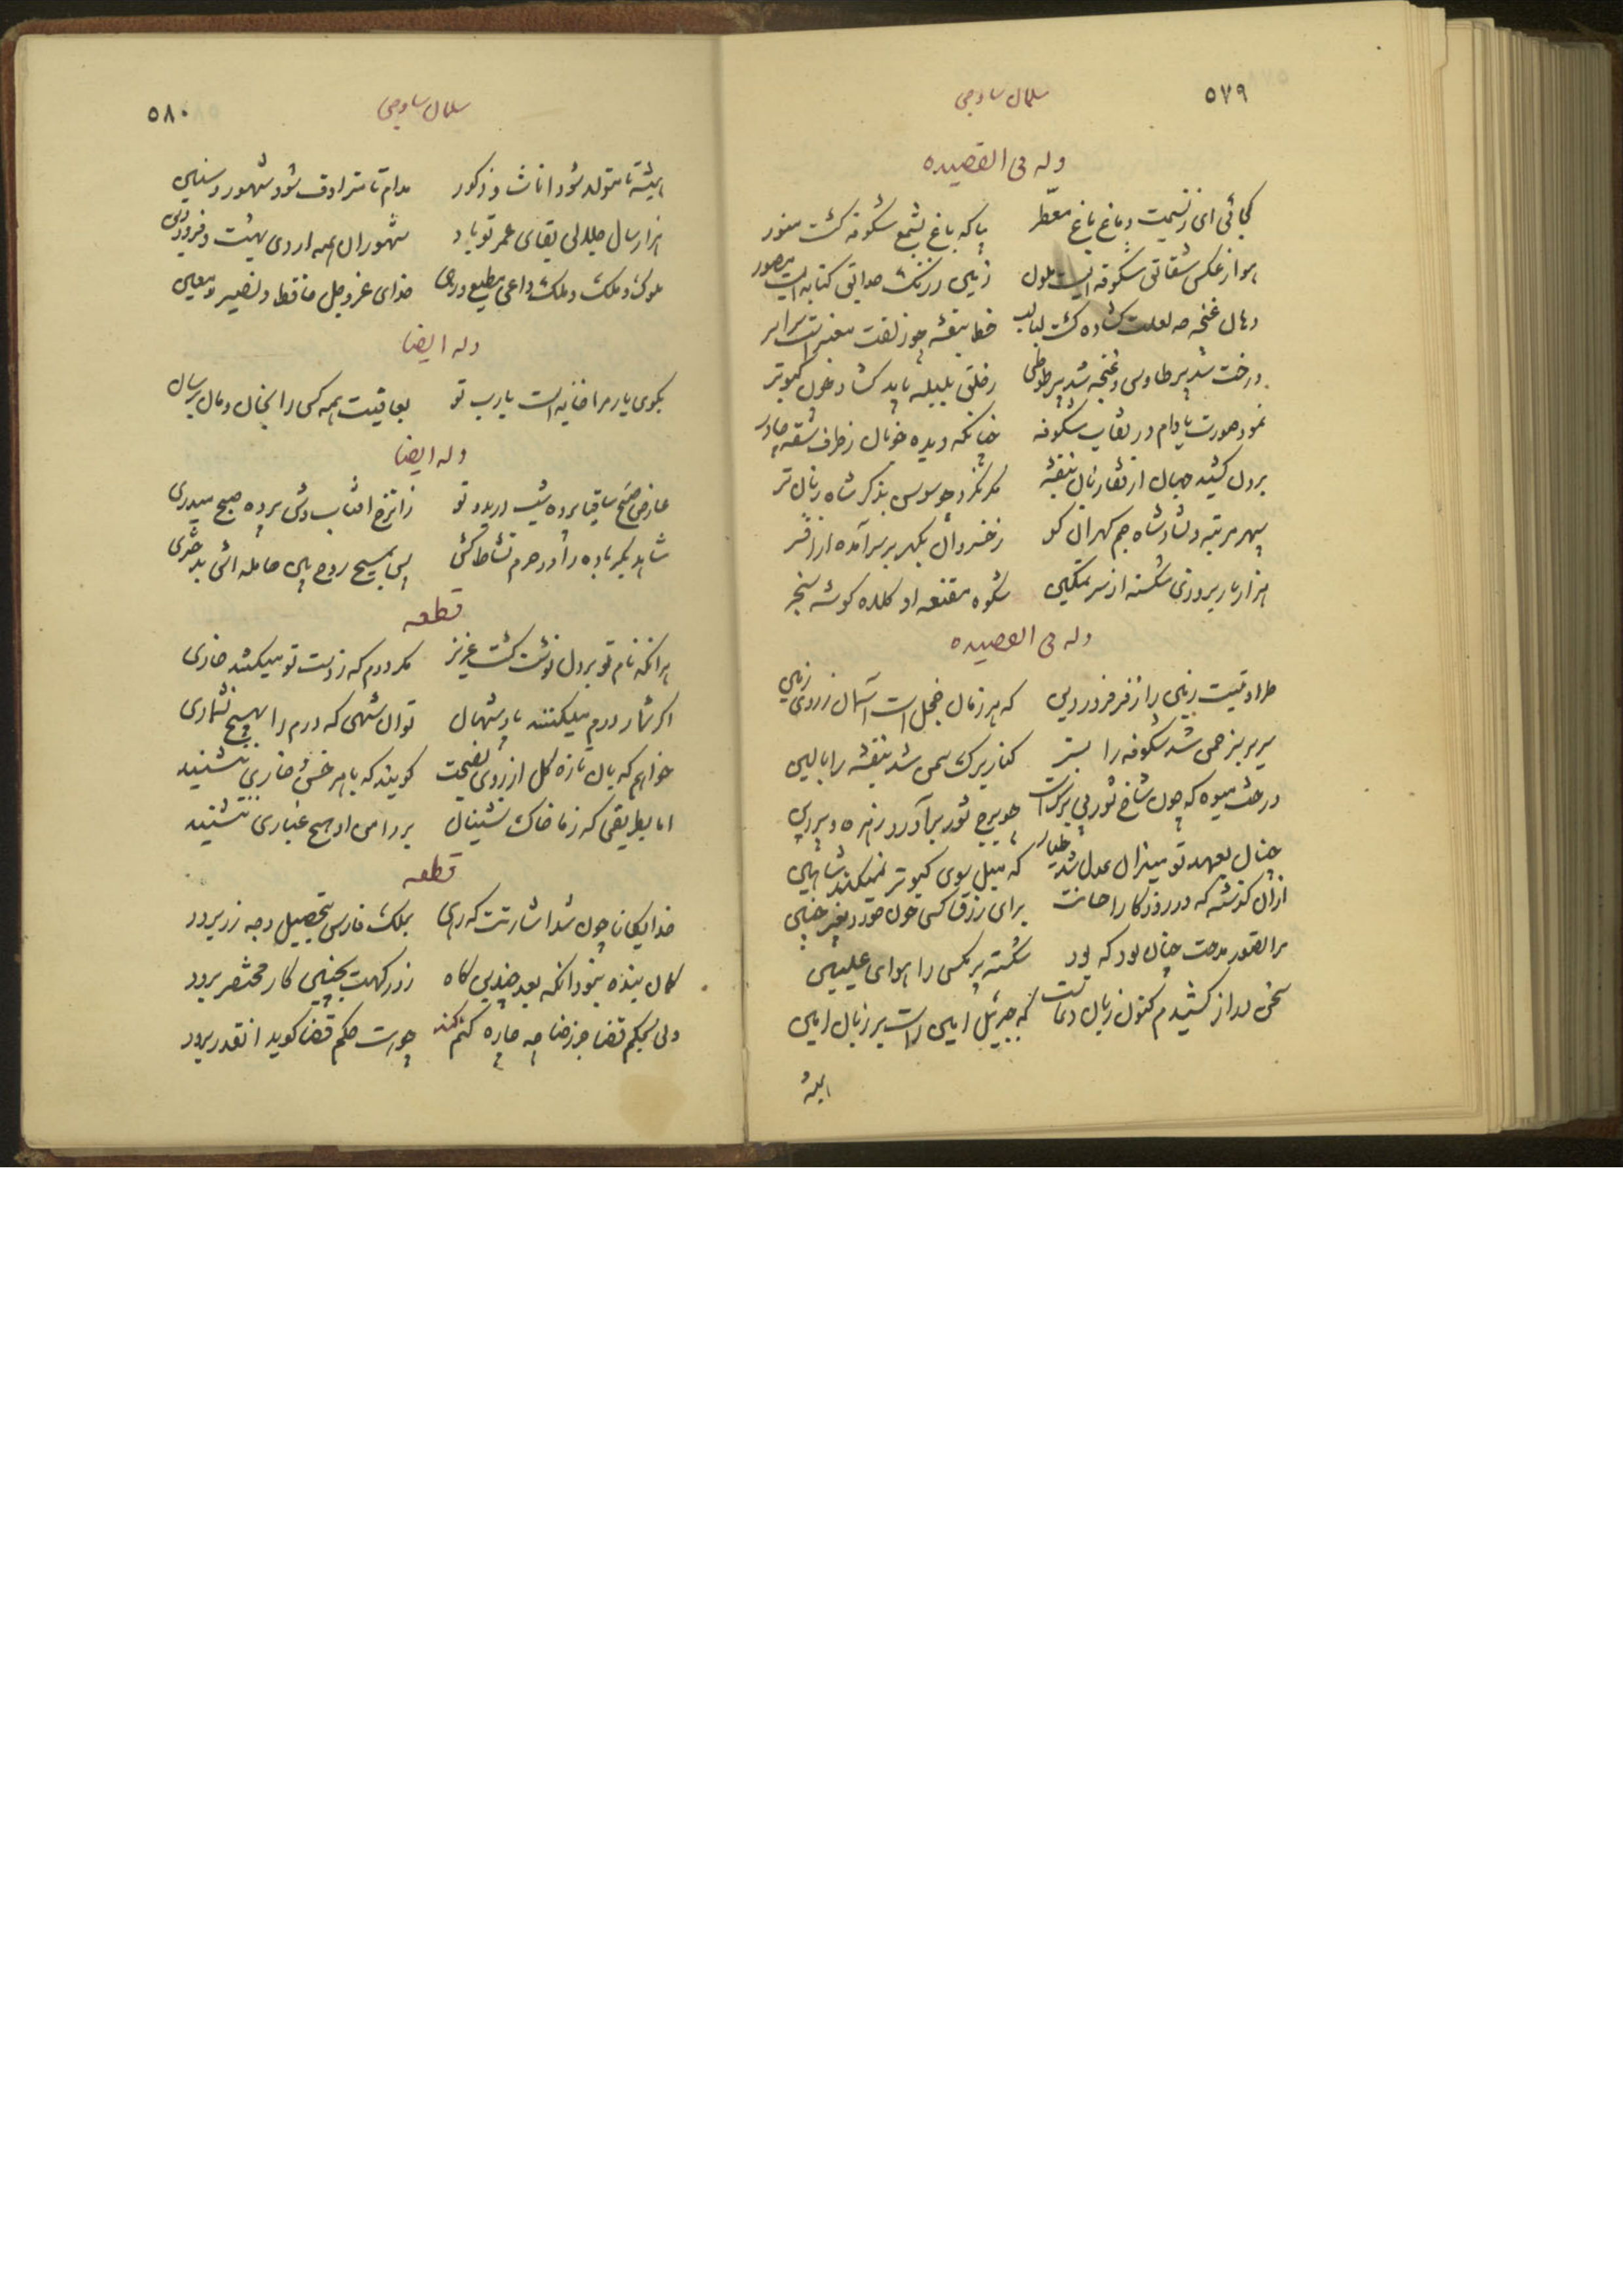 ۵۷۹
سلمان ساوجی
وله فی القصیده
کجائی ای ز نسیمت دماغ باغ معطر بیا که باغ بشمع شکوفه گشت منور
هوا ز عکس شقایق شکوفه ایست ملون زمین ز رنگ حدایق کتابه ایست مصور
دهان غنچه لعلت گشاده گشت لبالب خط بنفشه چو زلفت معنبر است سراسر
درخت شد پر طاوس و غنچه شد پر طوطی ز حلق بلبله باید گشاد خون کبوتر
نمود صورت بادام در نقاب شکوفه چنانکه دیده خوبان ز طرف شقه چادر
برون کشید زبان از قفا بنفشه مگر نکرد چو سوسن بذکر شاه زبان تر
سپهر مرتبه دلشاد شاه جم گهران کو ز خسروان بگهر بر سر آمده از افسر
هزار بار بروزی شکسته از سر تمکین شکوه مقنعه او کلاه گوشه سنجر
وله فی القصیده
طراوتیست زمین را ز فر فروردین که هر زمان خجل است آسمان ز روی زمین
سریر سبز چمن شد شکوفه را بستر کنار برگ سمن شد بنفشه را بالین
درخت میوه که چون شاخ ثور بی بر گشت چو برج ثور برآورد زهره و پروین
چنان بعهد تو میزان عدل شد طیار که میل سوی کبوتر نمیکند شاهین
ازان گذشته که در روزگار احسانت برای رزق کسی خون خورد بغیر جنین
مرا تصور مدحت چنان بود که بود شکسته پر مگسی را هوای علیین
سخن دراز کشیدم کنون زبان دعاست که جبرئیل امین راست بر زبان امین
همیشه
۵۸۰
سلمان ساوجی
همیشه تا متولد شود اناث و ذکور مدام تا مترادف شود شهور و سنین
هزار سال جلالی بقای عمر تو باد شهور آن همه اردی بهشت و فروردین
ملوک و ملک و ملک داعی و مطیع و رهی خدای عز و جل حافظ و نصیر و معین
وله ایضا
بکوی یار مرا خانه ایست یارب تو بعاقیت همه کس را بخان و مان برسان
وله ایضا
عارض صبح ساقیا پرده شب دریده تو ز اتش افتاب وش پرده صبح میدری
شاهد بکر باده را در حرم نشاط کش بس بمسیح روح بین حامله اش بدختری
قطعه
هر انکه نام تو بر دل نوشت گشت عزیز مگر درم که ز دست تو میکشد خواری
اگر شمار درم میکنند پادشهان تو ان شهی که درم را بهیچ نشماری
خواهم که بان تازه گل از روی نصیحت گویند که با هر خس و خاری ننشیند
اما بطریقی که ز ما خاک نشینان بر دامن او هیچ غباری ننشیند
قطعه
خدایگانا چون شد اشارتت که رهی بملک فارس بتحصیل وجه زر برود
گمان بنده نبود انکه بعد چندین گاه ز درگهت بچنین کار مختصر برود
ولی بحکم قضا جز رضا چه چاره کنم چو راست حکم قضا گوید انقدر برود